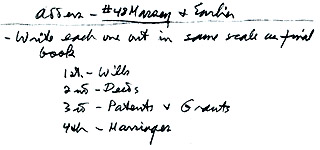 Adsers - #48 Massey & Earlier
- Write each one out in same scale as final
book
1st - Wills
2nd - Deeds
3rd - Patents & Grants
4th - Marriages